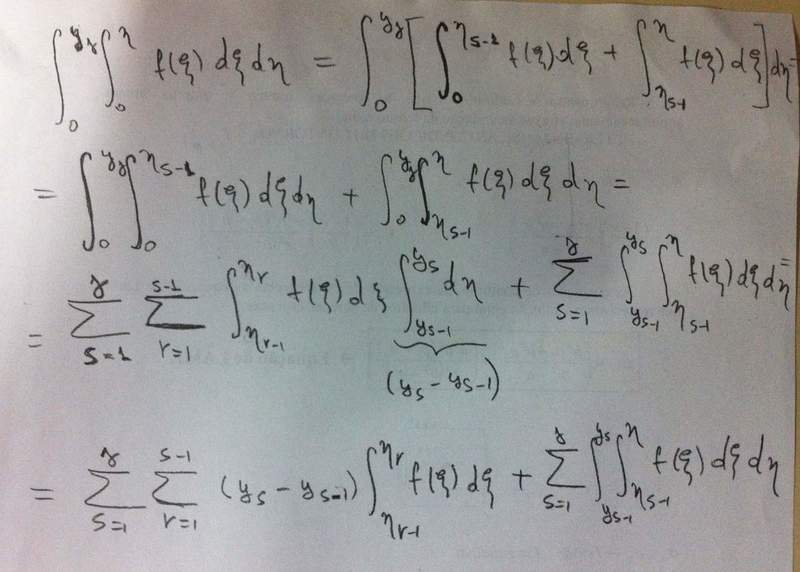 ∫₀^{yᵧ} ∫₀^{η} f(ξ) dξ dη = ∫₀^{yᵧ} [ ∫₀^{η_{s-1}} f(ξ) dξ + ∫_{η_{s-1}}^{η} f(ξ) dξ ] dη =
= ∫₀^{yᵧ} ∫₀^{η_{s-1}} f(ξ) dξ dη + ∫₀^{yᵧ} ∫_{η_{s-1}}^{η} f(ξ) dξ dη =
= ∑_{s=1}^{γ} ∑_{r=1}^{s-1} ∫_{η_{r-1}}^{η_r} f(ξ) dξ ∫_{y_{s-1}}^{y_s} dη + ∑_{s=1}^{γ} ∫_{y_{s-1}}^{y_s} ∫_{η_{s-1}}^{η} f(ξ) dξ dη =
(y_s - y_{s-1})
= ∑_{s=1}^{γ} ∑_{r=1}^{s-1} (y_s - y_{s-1}) ∫_{η_{r-1}}^{η_r} f(ξ) dξ + ∑_{s=1}^{γ} ∫_{y_{s-1}}^{y_s} ∫_{η_{s-1}}^{η} f(ξ) dξ dη